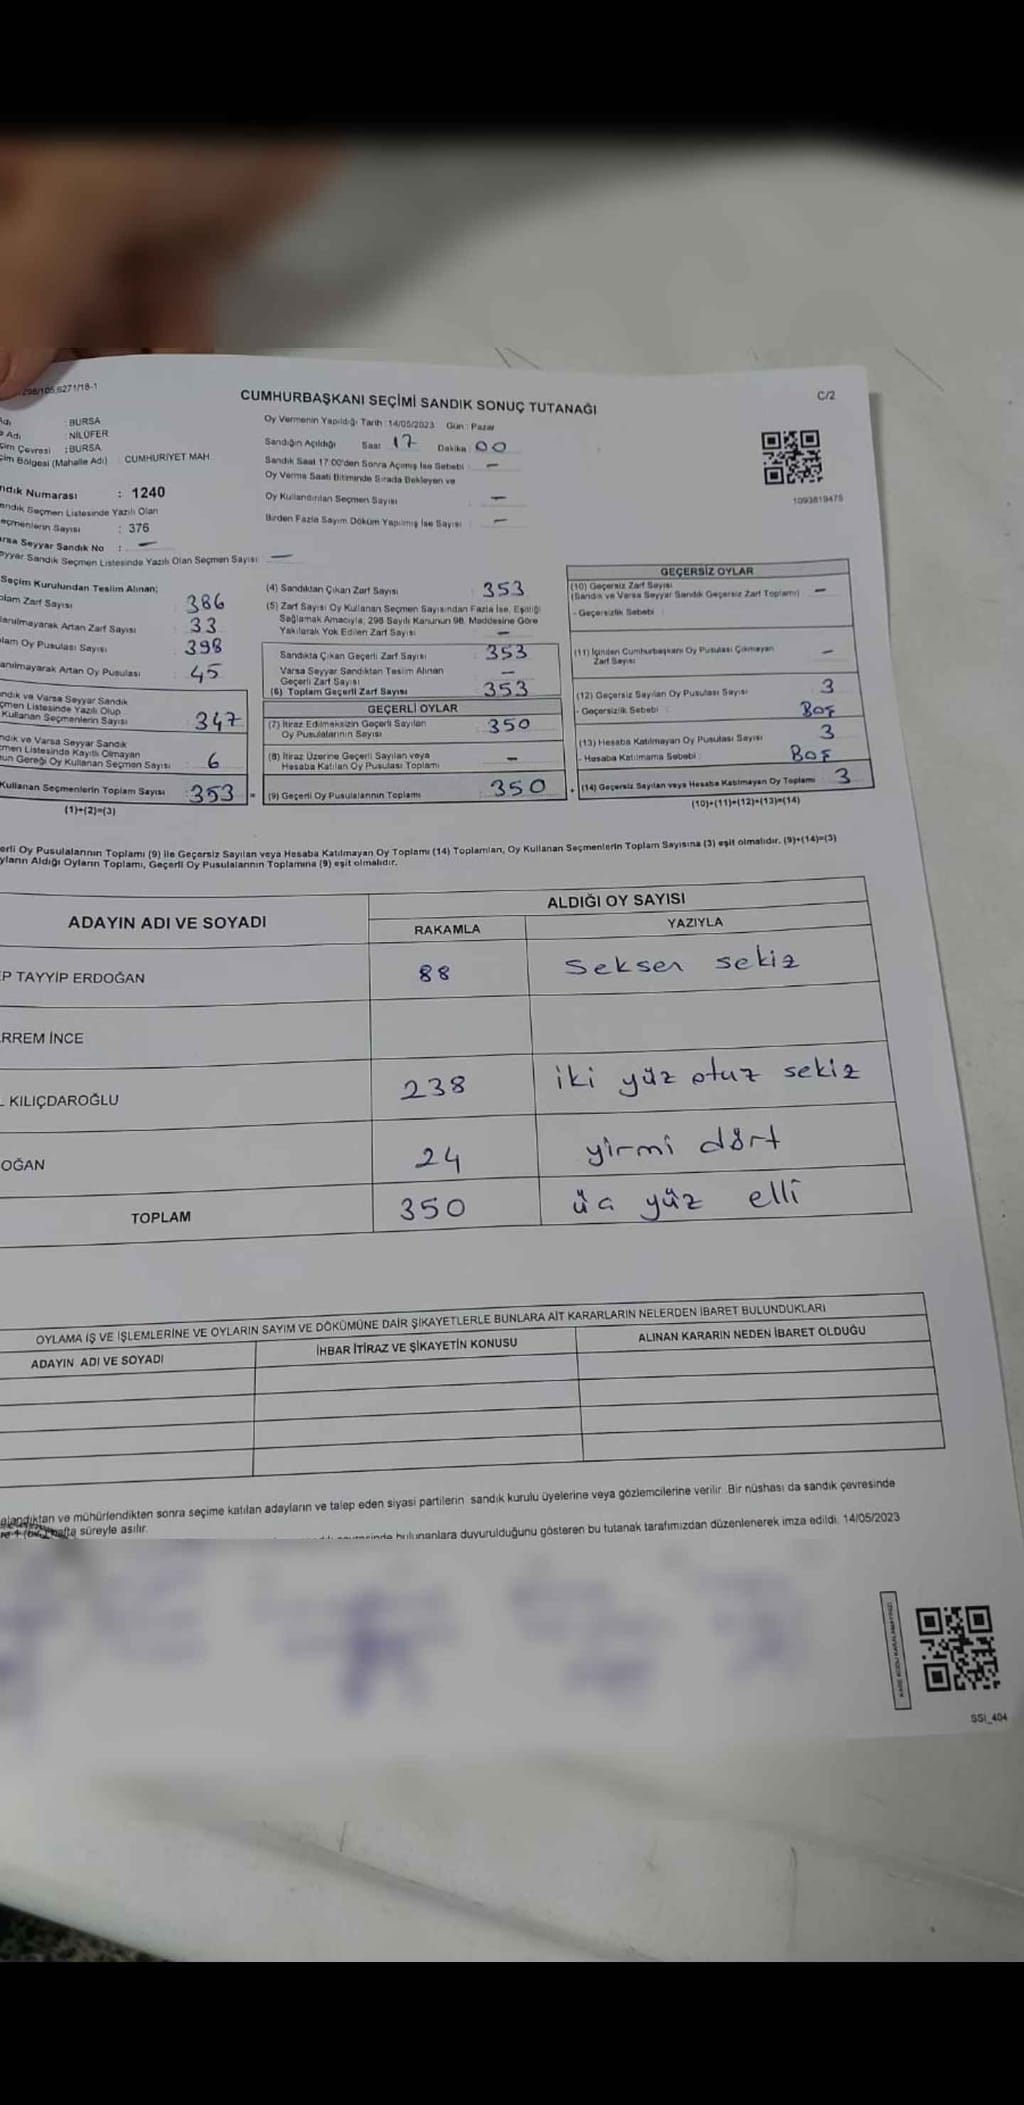 298/105,6271/18-1
CUMHURBAŞKANI SEÇİMİ SANDIK SONUÇ TUTANAĞI
C/2
: BURSA
: NİLÜFER
: BURSA
CUMHURİYET MAH
Oy Vermenin Yapıldığı Tarih : 14/05/2023 Gün : Pazar
Sandığın Açıldığı Saat 17 Dakika : 00
Sandık Saat 17:00'den Sonra Açımış İse Sebebi : —
Oy Verme Saati Bitiminde Sırada Bekleyen ve
Oy Kullandırılan Seçmen Sayısı : —
Birden Fazla Sayım Döküm Yapılmış İse Sayısı : —
1093819475
Numarası : 1240
Seçmen Listesinde Yazılı Olan
Sayısı : 376
Seyyar Sandık No : —
Seyyar Sandık Seçmen Listesinde Yazılı Olan Seçmen Sayısı : —
Seçim Kurulundan Teslim Alınan;
Zarf Sayısı 386
Artan Zarf Sayısı 33
Oy Pusulası Sayısı 398
Artan Oy Pusulası 45
ve Varsa Seyyar Sandık
Listesinde Yazılı Olup
Kullanan Seçmenlerin Sayısı 347
ve Varsa Seyyar Sandık
Listesinde Kayıtlı Olmayan
Gereği Oy Kullanan Seçmen Sayısı 6
Kullanan Seçmenlerin Toplam Sayısı 353 =
(1)+(2)=(3)
(4) Sandıktan Çıkan Zarf Sayısı 353
(5) Zarf Sayısı Oy Kullanan Seçmen Sayısından Fazla İse, Eşitliği
Sağlamak Amacıyla, 298 Sayılı Kanunun 98. Maddesine Göre
Yakılarak Yok Edilen Zarf Sayısı —
Sandıkta Çıkan Geçerli Zarf Sayısı 353
Varsa Seyyar Sandıktan Teslim Alınan
Geçerli Zarf Sayısı —
(6) Toplam Geçerli Zarf Sayısı 353
GEÇERLİ OYLAR
(7) İtiraz Edilmeksizin Geçerli Sayılan
Oy Pusulalarının Sayısı 350
(8) İtiraz Üzerine Geçerli Sayılan veya
Hesaba Katılan Oy Pusulası Toplamı —
(9) Geçerli Oy Pusulalarının Toplamı : 350 +
GEÇERSİZ OYLAR
(10) Geçersiz Zarf Sayısı
(Sandık ve Varsa Seyyar Sandık Geçersiz Zarf Toplamı) —
- Geçersizlik Sebebi :
(11) İçinden Cumhurbaşkanı Oy Pusulası Çıkmayan
Zarf Sayısı —
(12) Geçersiz Sayılan Oy Pusulası Sayısı 3
- Geçersizlik Sebebi : Boş
(13) Hesaba Katılmayan Oy Pusulası Sayısı 3
- Hesaba Katılmama Sebebi : Boş
(14) Geçersiz Sayılan veya Hesaba Katılmayan Oy Toplamı 3
(10)+(11)+(12)+(13)=(14)
Oy Pusulalarının Toplamı (9) ile Geçersiz Sayılan veya Hesaba Katılmayan Oy Toplamı (14) Toplamları, Oy Kullanan Seçmenlerin Toplam Sayısına (3) eşit olmalıdır. (9)+(14)=(3)
Aldığı Oyların Toplamı, Geçerli Oy Pusulalarının Toplamına (9) eşit olmalıdır.
ADAYIN ADI VE SOYADI
ALDIĞI OY SAYISI
RAKAMLA YAZIYLA
P TAYYİP ERDOĞAN 88 Seksen sekiz
RREM İNCE
KILIÇDAROĞLU 238 iki yüz otuz sekiz
OĞAN 24 yirmi dört
TOPLAM 350 üç yüz elli
OYLAMA İŞ VE İŞLEMLERİNE VE OYLARIN SAYIM VE DÖKÜMÜNE DAİR ŞİKAYETLERLE BUNLARA AİT KARARLARIN NELERDEN İBARET BULUNDUKLARI
ADAYIN ADI VE SOYADI İHBAR İTİRAZ VE ŞİKAYETİN KONUSU ALINAN KARARIN NEDEN İBARET OLDUĞU
ve mühürlendikten sonra seçime katılan adayların ve talep eden siyasi partilerin sandık kurulu üyelerine veya gözlemcilerine verilir. Bir nüshası da sandık çevresinde
hafta süreyle asılır.
bulunanlara duyurulduğunu gösteren bu tutanak tarafımızdan düzenlenerek imza edildi. 14/05/2023
KARE KODU KARALAMAYINIZ
SSI_404